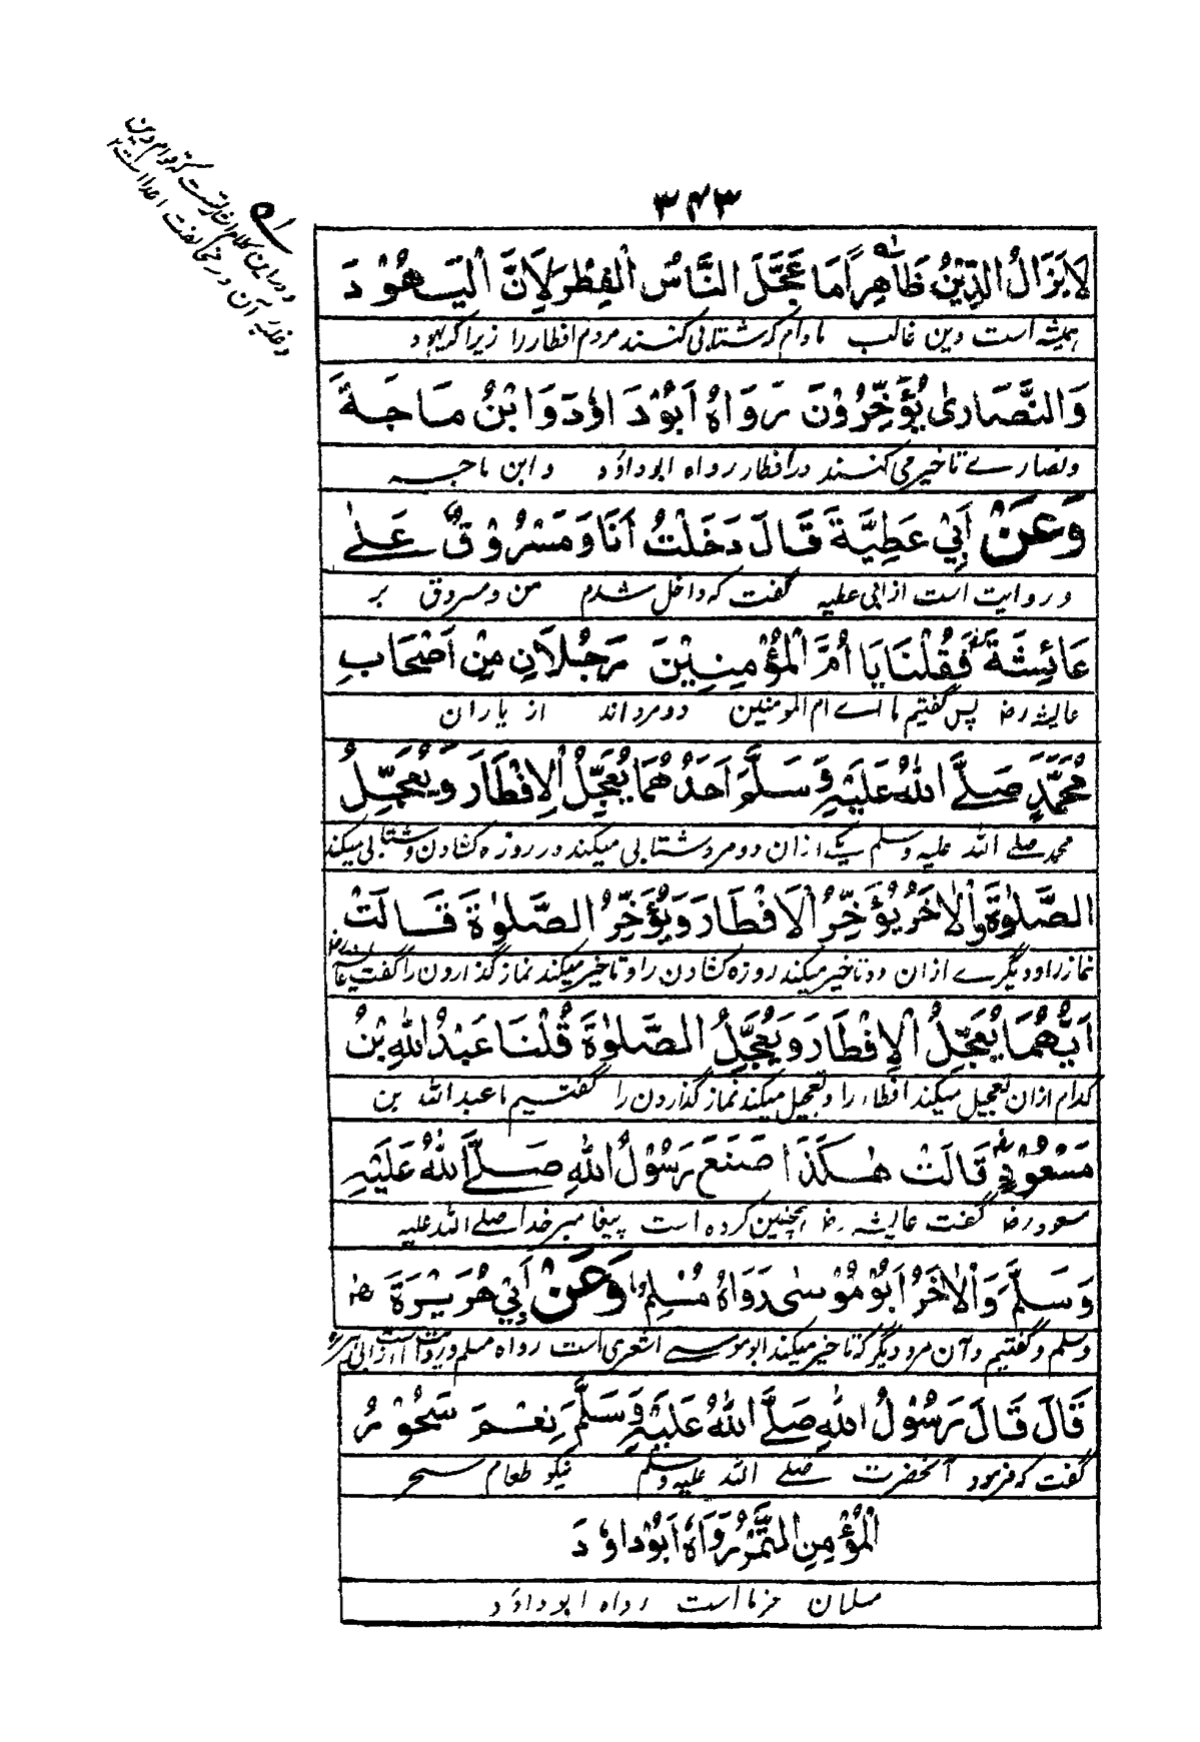 ۳۴۳
لَا يَزَالُ الدِّيْنُ ظَاهِرًا مَا عَجَّلَ النَّاسُ الْفِطْرَ لِاَنَّ الْيَهُوْدَ
ہمیشہ است دین غالب مادام کہ شتابی کنند مردم افطار را زیرا کہ یہود
وَالنَّصَارىٰ يُؤَخِّرُوْنَ رَوَاهُ اَبُوْدَاوٗدَ وَابْنُ مَاجَةَ
ونصارے تاخیر می کنند در افطار رواہ ابوداؤد وابن ماجہ
وَعَنْ اَبِيْ عَطِيَّةَ قَالَ دَخَلْتُ اَنَا وَمَسْرُوْقٌ عَلٰے
و روایت است از ابی عطیہ گفت کہ داخل شدم من و مسروق بر
عَائِشَةَ رض فَقُلْنَا يَا اُمَّ الْمُؤْمِنِيْنَ رَجُلَانِ مِنْ اَصْحَابِ
عایشہ رض پس گفتیم ما اے ام المومنین دو مرد اند از یاران
مُحَمَّدٍ صَلَّے اللهُ عَلَيْهِ وَسَلَّمَ اَحَدُهُمَا يُعَجِّلُ الْاِفْطَارَ وَيُعَجِّلُ
محمد صلے اللہ علیہ وسلم یکے ازان دو مرد شتابی میکند در روزہ کشادن و شتابی میکند
الصَّلٰوةَ وَالْاٰخَرُ يُؤَخِّرُ الْاِفْطَارَ وَيُؤَخِّرُ الصَّلٰوةَ قَالَتْ
نماز را و دیگرے ازان دو تاخیر میکند روزہ کشادن را و تاخیر میکند نماز گذارون را گفت عایشہ رض
اَيُّهُمَا يُعَجِّلُ الْاِفْطَارَ وَيُعَجِّلُ الصَّلٰوةَ قُلْنَا عَبْدُ اللهِ بْنُ
کدام ازان تعجیل میکند افطار را و تعجیل میکند نماز گذاردن را گفتیم ما عبداللہ بن
مَسْعُوْدٍ رض قَالَتْ هٰكَذَا صَنَعَ رَسُوْلُ اللهِ صَلَّے اللهُ عَلَيْهِ
مسعود رض گفت عایشہ رض ہمچنین کردہ است پیغامبر خدا صلے اللہ علیہ
وَسَلَّمَ وَالْاٰخَرُ اَبُوْ مُوْسٰى رَوَاهُ مُسْلِمٌ وَعَنْ اَبِيْ هُرَيْرَةَ رض
وسلم و گفتیم و آن مرد دیگر کہ تاخیر میکند ابو موسے اشعری است رواہ مسلم و روایت است از ابی ہریرہ
قَالَ قَالَ رَسُوْلُ اللهِ صَلَّے اللهُ عَلَيْهِ وَسَلَّمَ نِعْمَ سَحُوْرُ
گفت کہ فرمود آنحضرت صلے اللہ علیہ وسلم نیکو طعام سحر
الْمُؤْمِنِ التَّمْرُ رَوَاهُ اَبُوْدَاوٗدَ
مسلمان خرما است رواہ ابوداؤد
لہ
و دراین کلام اشارتست کہ قوام دین
و غلبۂ آن در مخالفت اعدا است ۲